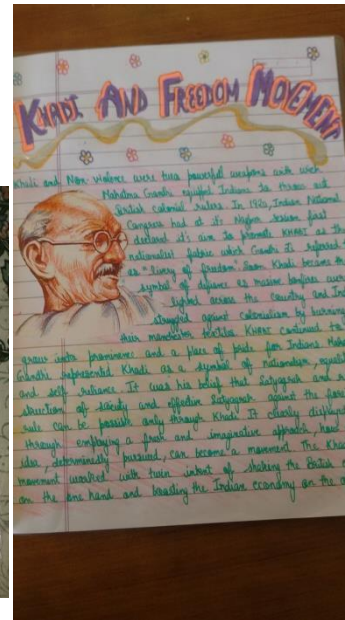 KHADI AND FREEDOM MOVEMENT
Khadi and Non-violence were two powerful weapons with wich
Mahatma Gandhi equiped Indians to throw out
British colonial rulers. In 1920, Indian National
Congress had at it's Nagpur session first
declared it's aim to promote KHADI as the
nationalist fabric which Gandhi Ji referred
as "livery of freedom". Soon Khadi became the
symbol of defiance as massive bonfires were
lighted across the country and
struggled against colonialism by burning
their manchester textiles KHADI continued to
grow into prominence and a place of pride for Indians
Gandhi represented Khadi as a symbol of nationalism,
and self reliance. It was his belief that
of society and effective Satyagrah against the
rule can be possible only through Khadi. It clearly
through employing a fresh and imaginative approach, how
idea, determinedly pursued, can become a movement. The
movement worked with twin intent of shaking the British
on the one hand and boosting the Indian economy on the